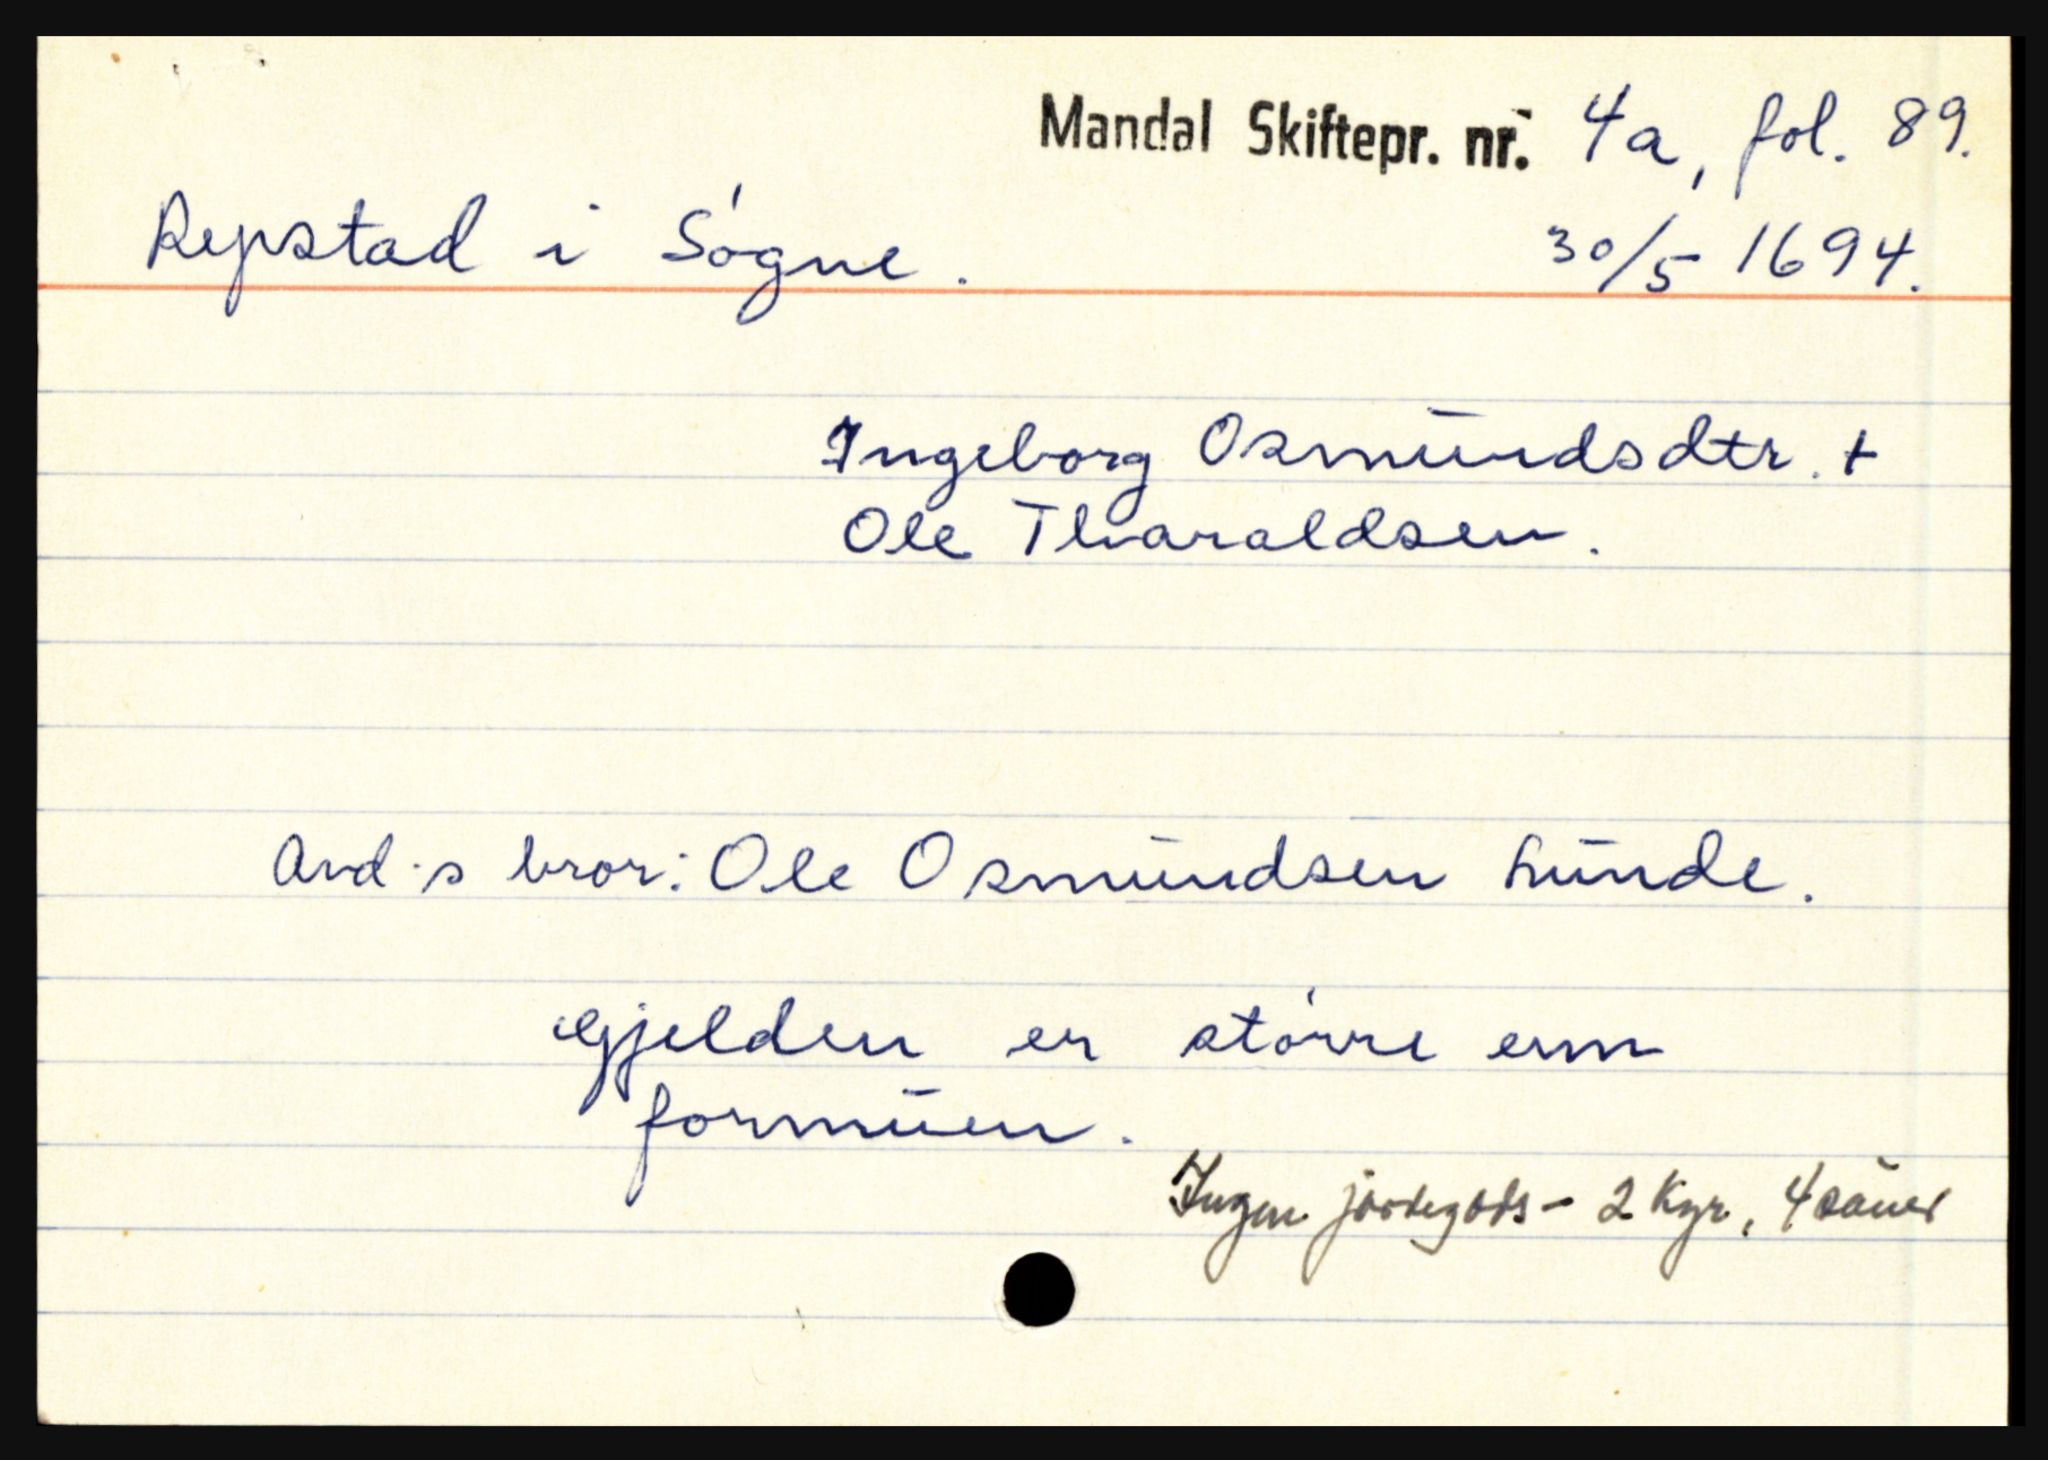 Mandal Skiftepr. nr. 4a, fol. 89.
Repstad i Søgne. 30/5 1694.
Ingeborg Osmundsdtr. +
Ole Tharaldsen.
Avd.s bror: Ole Osmundsen Lunde.
Gjelden er større enn
formuen.
Ingen jordegods - 2 kyr, 4 sauer